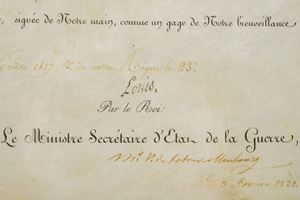 , signée de Notre main, comme un gage de Notre bienveillance
Grâce 1817, & de notre Règne le 23e
Louis,
Par le Roi:
Le Ministre Secrétaire d'Etat de la Guerre,
Février 182